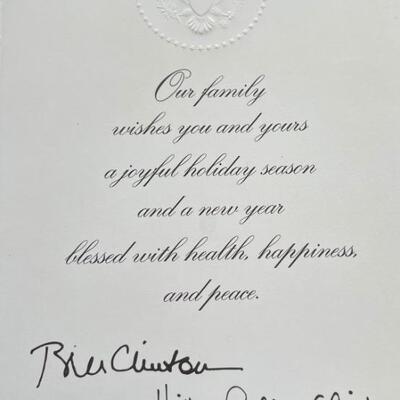 Our family
wishes you and yours
a joyful holiday season
and a new year
blessed with health, happiness,
and peace.
Bill Clinton